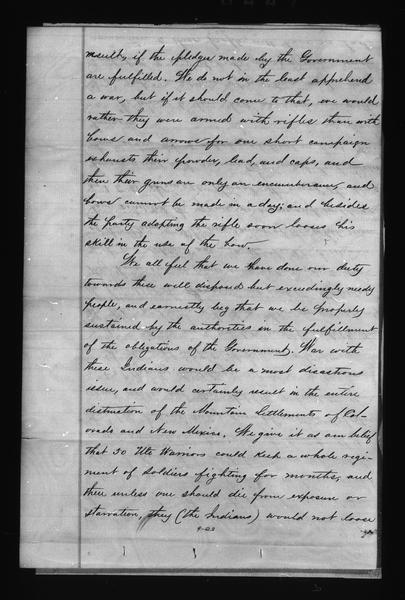 result, if the pledges made by the Government
are fulfilled. We do not in the least apprehend
a war, but if it should come to that, we would
rather they were armed with rifles than with
bows and arrows for one short campaign
exhausts their powder, lead, and caps, and
then their guns are only an encumbrance, and
bows cannot be made in a day; and besides
the party adopting the rifle soon looses his
skill in the use of the bow.—
We all feel that we have done our duty
towards these well disposed but exceedingly needy
people, and earnestly beg that we be properly
sustained by the authorities in the fulfillment
of the obligations of the Government. War with
these Indians would be a most disastrous
issue, and would certainly result in the entire
distruction of the Mountain Settlements of Col-
orado and New Mexico. We give it as our belief
that 50 Ute Warriors could keep a whole regi-
ment of soldiers fighting for months, and
then unless one should die from exposure or
starvation, they (the Indians) would not loose